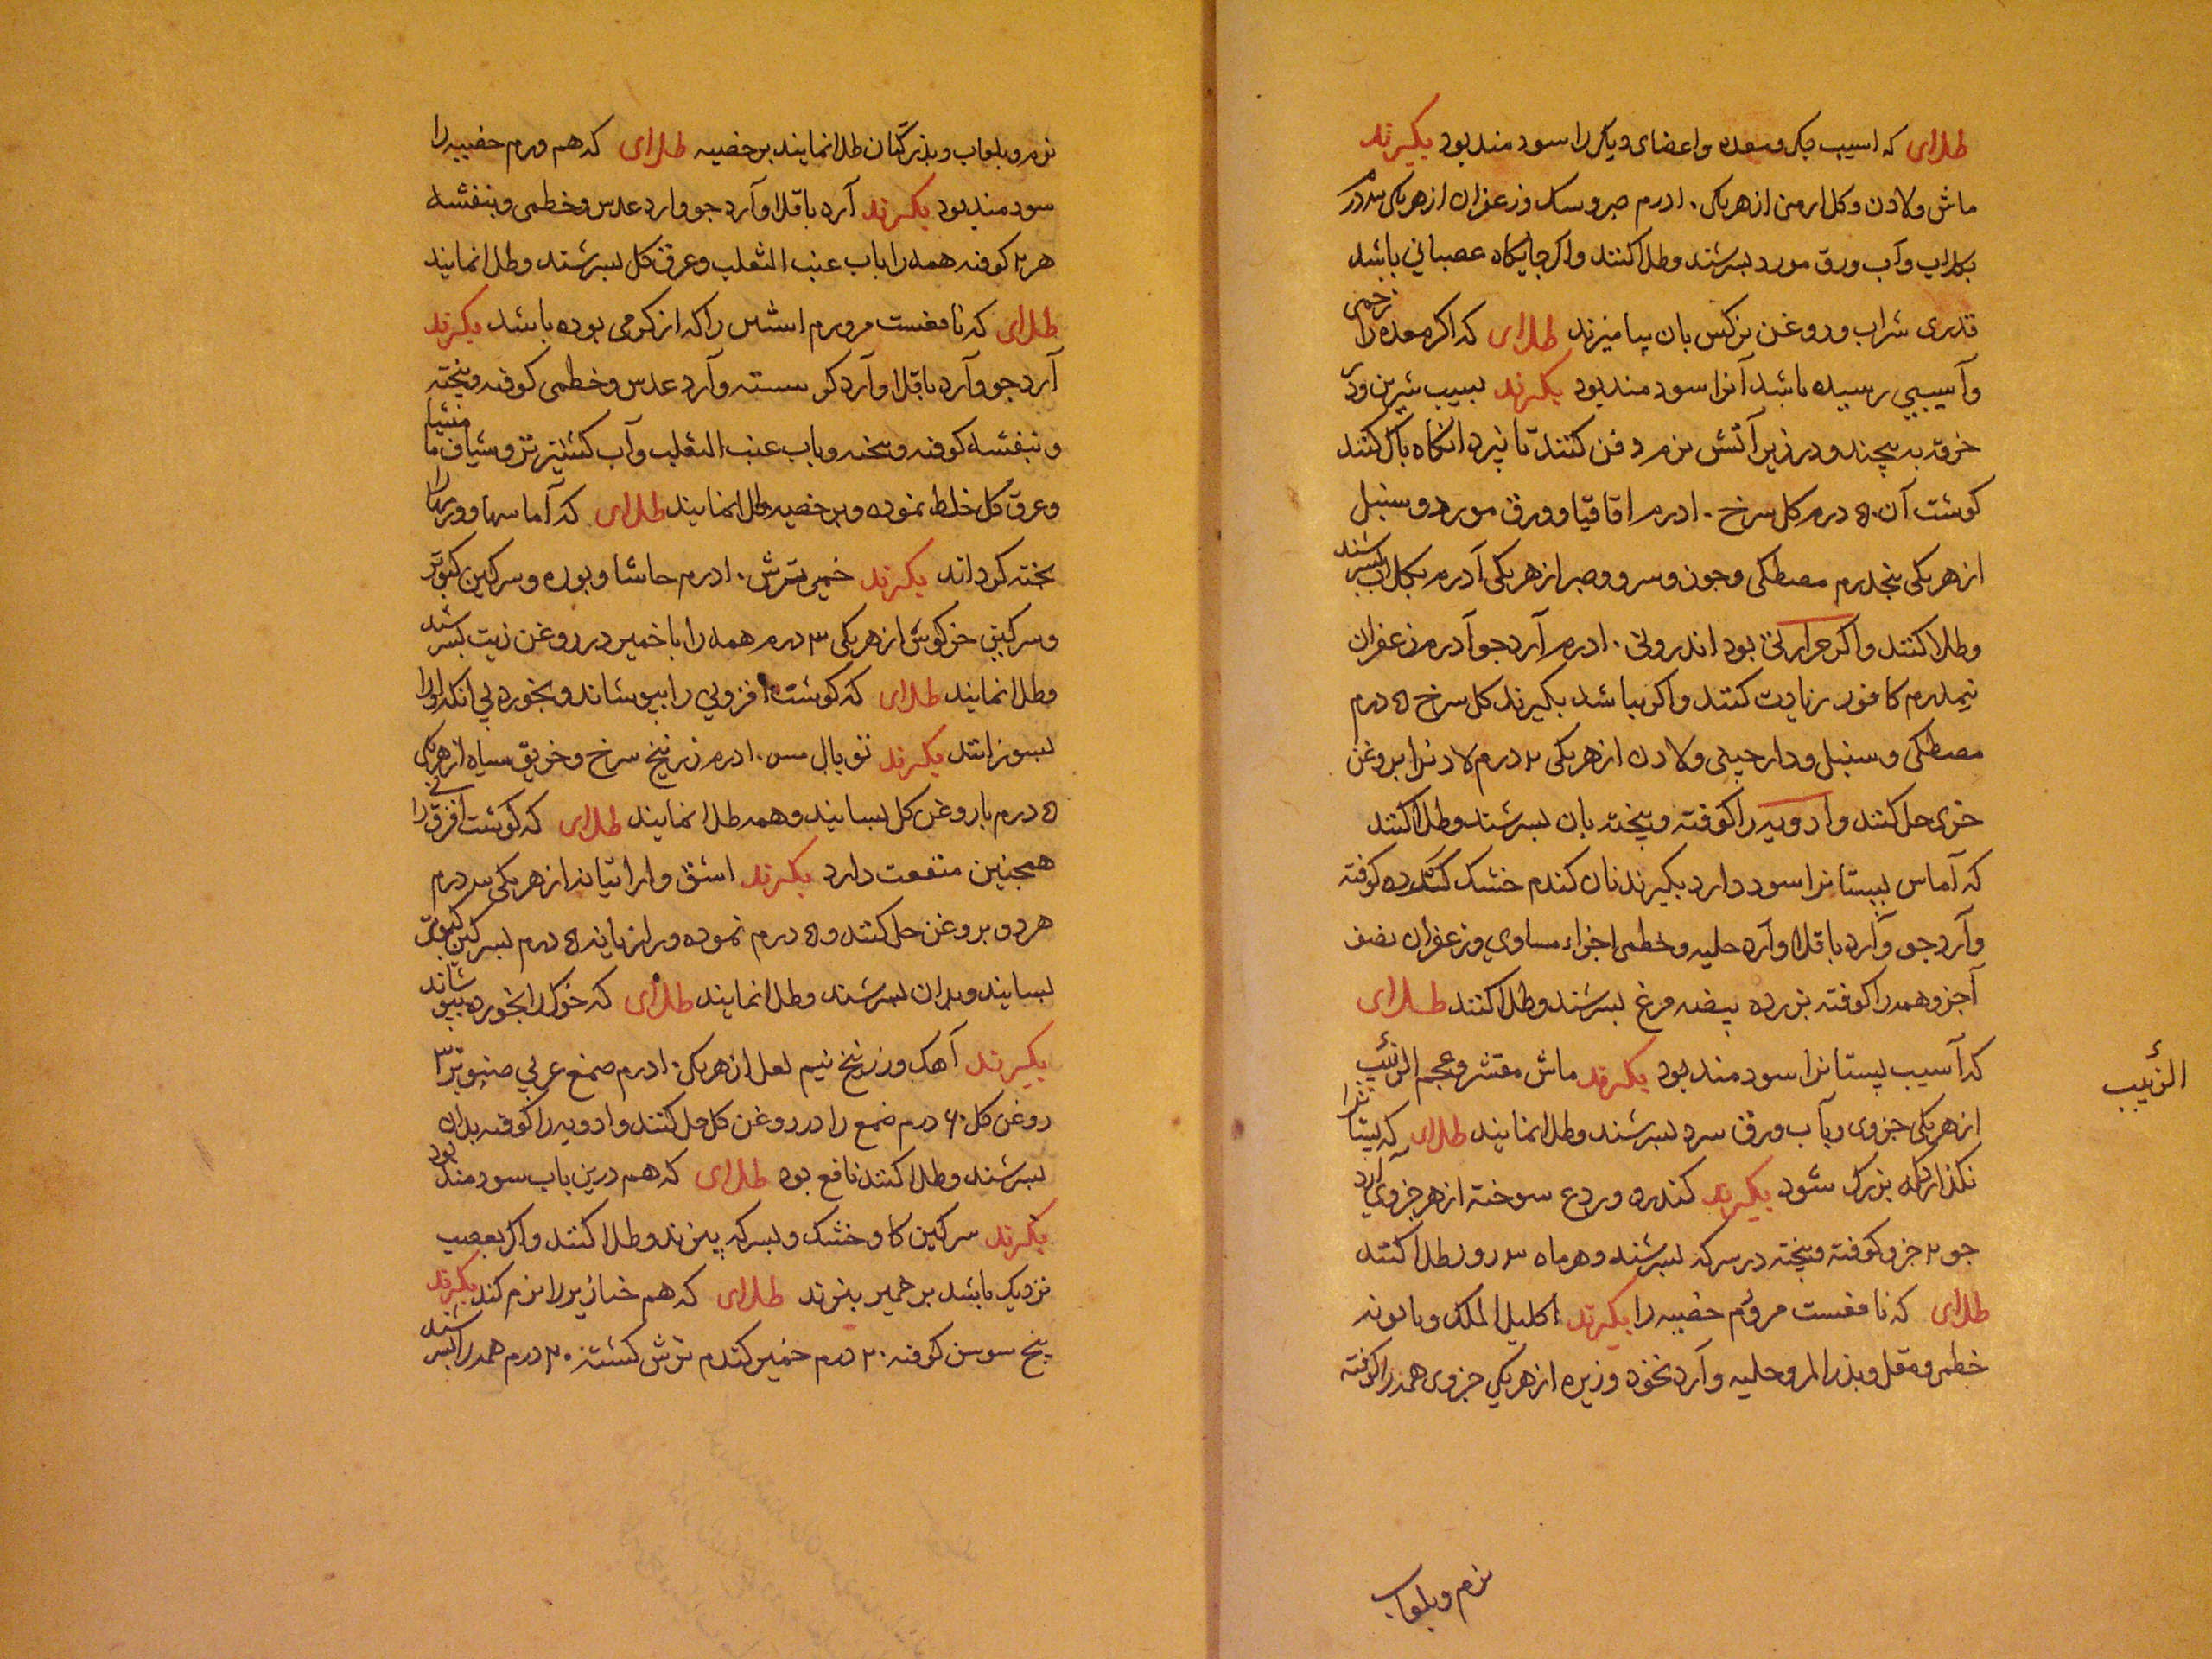 طلای که اسیب جکر و معده و اعضای دیکر را سودمند بود بکیرند
ماش و لادن و کل ارمنی از هر یکی ۱۰ درم صبر و سک و زعفران از هر یکی ۳ درم
بکلاب و آب ورق مورد بسرشند و طلا کنند و اکر جایکاه عصبانی باشد
قدری شراب و روغن نرکس بان بیامیزند طلای که اکر معده را زخمی
و آسیبی رسیده باشد آنرا سودمند بود بکیرند سیب شیرین و در
خرقه به پیچند و در زیر آتش نرم دفن کنند تا بپزد انکاه پاک کنند
کوشت آن ۵۰ درم کل سرخ ۱۰ درم اقاقیا و ورق مورد و سنبل
از هر یکی پنجدرم مصطکی و جوز و سرو و صبر از هر یکی آدرم بکلاب بسرشند
و طلا کنند و اکر حرارتی بود اندرونی ۱۰ درم آرد جو آدرم زعفران
نیمدرم کافور زیادت کنند و اکر نباشد بکیرند کل سرخ ۵ درم
مصطکی و سنبل و دارچینی و لادن از هر یکی ۲ درم لادنرا بروغن
خیری حل کنند و ادویه را کوفته و بیخته بان بسرشند و طلا کنند
که آماس پستانرا سود دارد بکیرند نان کندم خشک کرده کوفته
و آرد جو و آرد باقلا و آرد حلبه و خطمی اجزاء مساوی و زعفران نصف
آجزو همه را کوفته بزرده بیضه مرغ بسرشند و طلا کنند طلای
که آسیب پستانرا سودمند بود بکیرند ماش مقشر و عجم الزبیب
الزبیب
از هر یکی جزوی و بآب ورق سرو بسرشند و طلا نمایند طلای که پستانرا
نکذارد که بزرک شود بکیرند کندر و ودع سوخته از هر جزوی آرد
جو ۲ جزو کوفته و بیخته در سرکه بسرشند و هر ماه ۳ روز طلا کنند
طلای که نافعست مر ورم خصیه را بکیرند اکلیل الملک و بابونه
خطمی و مقل و بذر المرو و حلبه و آرد نخود و زیره از هر یکی جزوی همه را کوفته
نرم و بلعاب
نرم و بلعاب و بذر کتان طلا نمایند بر خصیه طلای که هم ورم خصیه را
سودمند بود بکیرند آرد باقلا و آرد جو و ارد عدس و خطمی و بنفشه
هر ۲ کوفته همه را باب عنب الثعلب و عرق کل بسرشند و طلا نمایند
طلای که نافعست مر ورم انثیین را که از کرمی بوده باشد بکیرند
آرد جو و آرد باقلا و آرد کو سسته و آرد عدس و خطمی کوفته و بیخته
و بنفشه کوفته و بیخته و باب عنب الثعلب و آب کشنیز تر و شیاف مامیثا
و عرق کل خلط نموده و بر خصیه طلا نمایند طلای که آماسها و ورمها را
پخته کرداند بکیرند خمیر ترش ۱۰ درم حاشا و بوره و سرکین کبوتر
و سرکین خرکوش از هر یکی ۳ درم همه را با خمیر در روغن زیت بسرشند
و طلا نمایند طلای که کوشت افزونی را بپوشاند و بخورد بی آنکه اورا
بسوزانند بکیرند توبال مس ۱۰ درم زرنیخ سرخ و خربق سیاه از هر یکی
۵ درم با روغن کل بسایند و همه طلا نمایند طلای که کوشت افزونی را
همچنین منفعت دارد بکیرند اشق و اراتیانه از هر یکی ۳ درم
هر دو بروغن حل کنند و ۵ درم نموده و رازیانه ۵ درم بسرکین کبوتر
بسایند و بدان بسرشند و طلا نمایند طلای که خوک را بخورد و بپوشاند
بکیرند آهک و زرنیخ نیم لعل از هر یکی ۱۰ درم صمغ عربی صنوبر ۳
روغن کل ۶۰ درم صمغ را در روغن کل حل کنند و ادویه را کوفته بدان
بسرشند و طلا کنند نافع بود طلای که هم درین باب سودمند بود
بکیرند سرکین کاو خشک و بسرکه بپزند و طلا کنند و اکر بعصب
نزدیک باشد بر خمیر بپزند طلای که هم خنازیر را نرم کند بکیرند
بیخ سوسن کوفته ۲۰ درم خمیر کندم ترش کشته ۲۰ درم همه را بسرشند